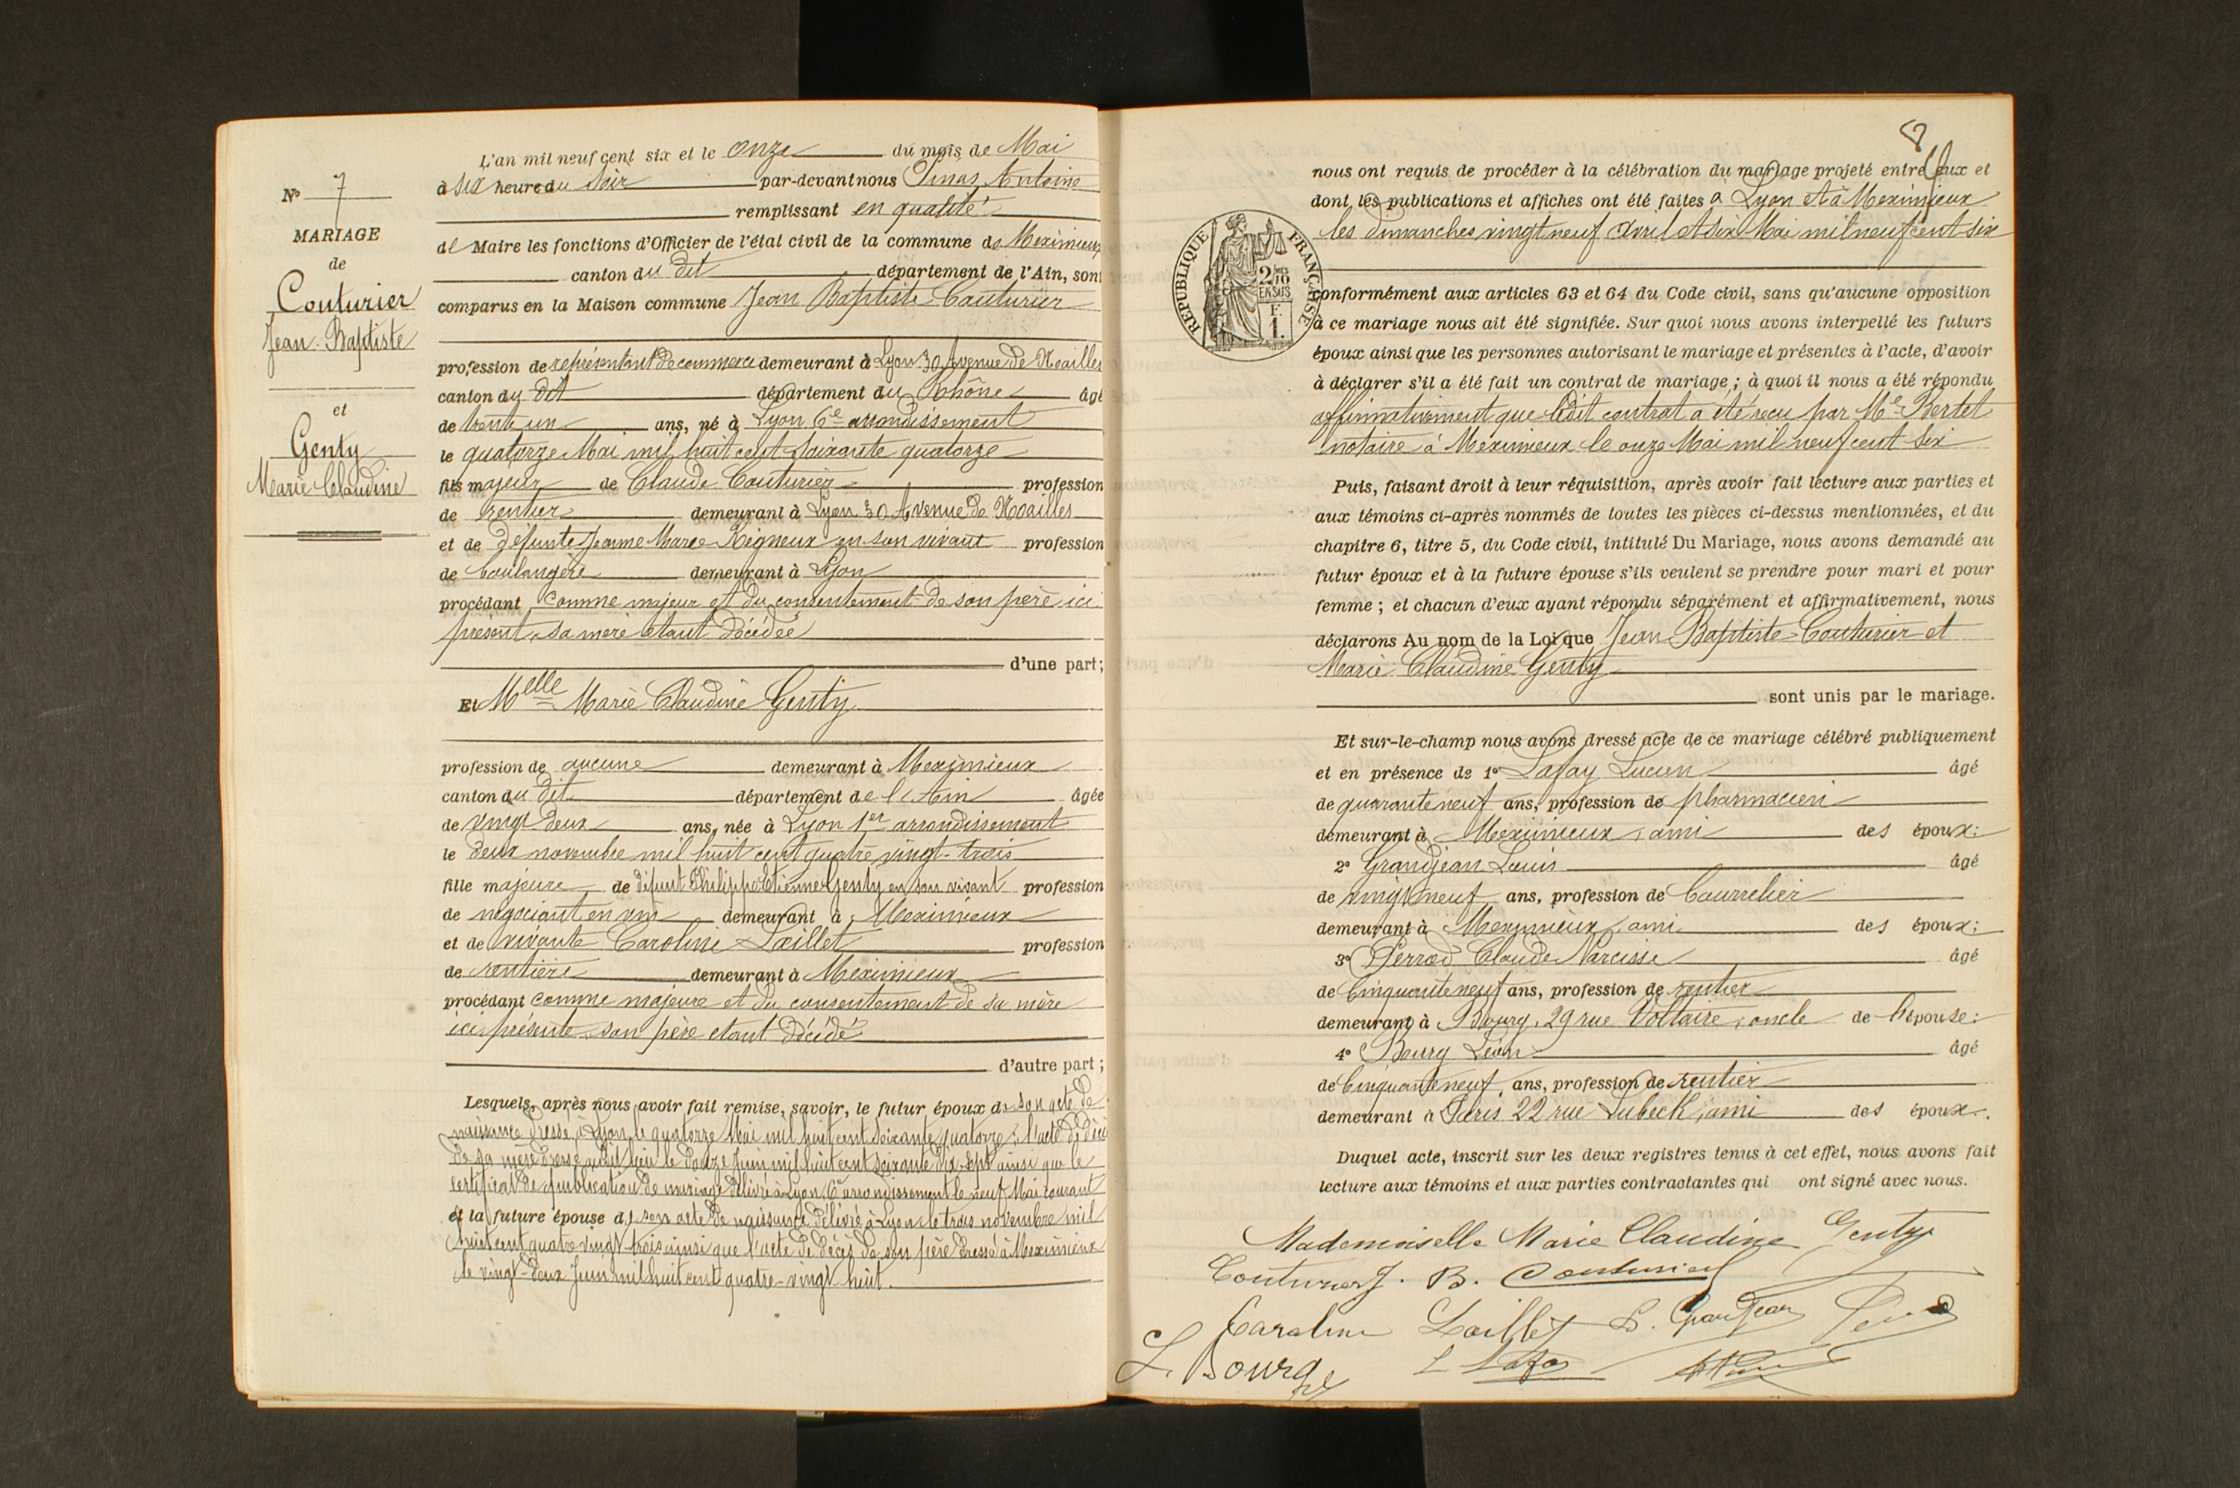 L'an mil neuf cent six et le onze du mois de Mai
à six heure du soir par-devant nous Pinas Antoine
remplissant en qualité
de Maire les fonctions d'Officier de l'état civil de la commune de Meximieux
canton du dit département de l'Ain, sont
comparus en la Maison commune Jean Baptiste Couturier
profession de représentant de commerce demeurant à Lyon 30 Avenue de Noailles
canton du dit département du Rhône âgé
de trente un ans, né à Lyon 6e arrondissement
le quatorze Mai mil huit cent soixante quatorze
fils majeur de Claude Couturier profession
de rentier demeurant à Lyon 30 Avenue de Noailles
et de défunte Jeanne Marie Reigneux en son vivant profession
de boulangère demeurant à Lyon
procédant comme majeur et du consentement de son père ici
présent, sa mère étant décédée
d'une part;
Et Melle Marie Claudine Genty
profession de aucune demeurant à Meximieux
canton du dit département de l'Ain âgée
de vingt deux ans, née à Lyon 1er arrondissement
le deux novembre mil huit cent quatre vingt-trois
fille majeure de défunt Philippe Etienne Genty en son vivant profession
de négociant en vin demeurant à Meximieux
et de vivante Caroline Loeillet profession
de rentière demeurant à Meximieux
procédant comme majeure et du consentement de sa mère
ici présente, son père étant décédé
d'autre part;
Lesquels, après nous avoir fait remise, savoir, le futur époux de son acte de
naissance dressé à Lyon le quatorze Mai mil huit cent soixante quatorze, l'acte de décès
de sa mère dressé audit lieu le douze Juin mil huit cent soixante dix sept ainsi que le
certificat de publication de mariage délivré à Lyon 6e arrondissement le neuf Mai courant
et la future épouse de son acte de naissance délivré à Lyon le trois novembre mil
huit cent quatre vingt trois ainsi que l'acte de décès de son père dressé à Meximieux
le vingt-deux Juin mil huit cent quatre-vingt huit.
No 7
MARIAGE
de
Couturier
Jean-Baptiste
et
Genty
Marie Claudine
nous ont requis de procéder à la célébration du mariage projeté entre eux et
dont les publications et affiches ont été faites à Lyon et à Meximieux
les dimanches vingt neuf Avril et six Mai mil neuf cent six
RÉPUBLIQUE FRANÇAISE
2/10 EN SUS
F. 1.
conformément aux articles 63 et 64 du Code civil, sans qu'aucune opposition
à ce mariage nous ait été signifiée. Sur quoi nous avons interpellé les futurs
époux ainsi que les personnes autorisant le mariage et présentes à l'acte, d'avoir
à déclarer s'il a été fait un contrat de mariage; à quoi il nous a été répondu
affirmativement que ledit contrat a été reçu par Me Bertet
notaire à Meximieux le onze Mai mil neuf cent six
Puis, faisant droit à leur réquisition, après avoir fait lecture aux parties et
aux témoins ci-après nommés de toutes les pièces ci-dessus mentionnées, et du
chapitre 6, titre 5, du Code civil, intitulé Du Mariage, nous avons demandé au
futur époux et à la future épouse s'ils veulent se prendre pour mari et pour
femme; et chacun d'eux ayant répondu séparément et affirmativement, nous
déclarons Au nom de la Loi que Jean-Baptiste Couturier et
Marie Claudine Genty
sont unis par le mariage.
Et sur-le-champ nous avons dressé acte de ce mariage célébré publiquement
et en présence de 1o Lafay Lucien âgé
de quarante neuf ans, profession de pharmacien
demeurant à Meximieux, ami des époux;
2o Grandjean Louis âgé
de vingt neuf ans, profession de Bourrelier
demeurant à Meximieux, ami des époux;
3o Perrod Claude Narcisse âgé
de Cinquante neuf ans, profession de rentier
demeurant à Bourg, 29 rue Voltaire, oncle de l'épouse;
4o Bourg Léon âgé
de Cinquante neuf ans, profession de rentier
demeurant à Paris 22 rue Lubeck, ami des époux.
Duquel acte, inscrit sur les deux registres tenus à cet effet, nous avons fait
lecture aux témoins et aux parties contractantes qui ont signé avec nous.
Mademoiselle Marie Claudine Genty
Couturier J. B. Couturier
Caroline Loeillet L. Grandjean
L. Bourg L Lafay